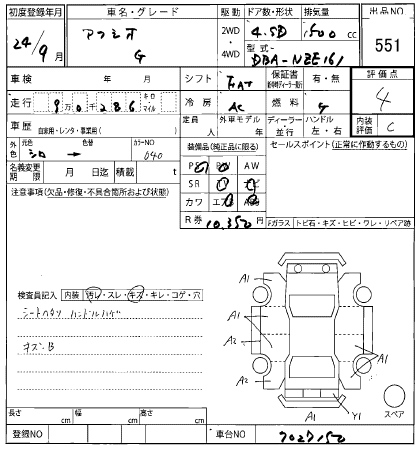 初度登録年月 車名・グレード 駆動 ドア数・形状 排気量 出品NO
24/9月 G 2WD 4WD 4.5D 1500 cc 551
型式 DBA-NZE161
車検 年 月 シフト FAT 保証書 有・無 評価点
走行 9万0千286 キロ・マイル 冷房 AC 燃料 G 4
定員 人 外車モデル 年 ディーラー 並行 ハンドル 左・右 内装評価 C
車歴 自家用・レンタ・事業用( )
外色 元色 シロ → 色替 カラーNO 040
装備品(純正品に限る) セールスポイント(正常に作動するもの)
名義変更期限 月 日迄 積載 t
PS PW AW
SR ナビ
カワ エアB
R券 10,350円
注意事項(欠品・修復・不具合箇所および状態)
Fガラス トビ石・キズ・ヒビ・ワレ・リペア跡
検査員記入 内装 汚レ・スレ・キズ・キレ・コゲ・穴
キズB
A1 A1
A1
A2 A1
A2
A1 Y1 スペア
長さ cm 幅 cm 高さ cm
登録NO 車台NO 7027150